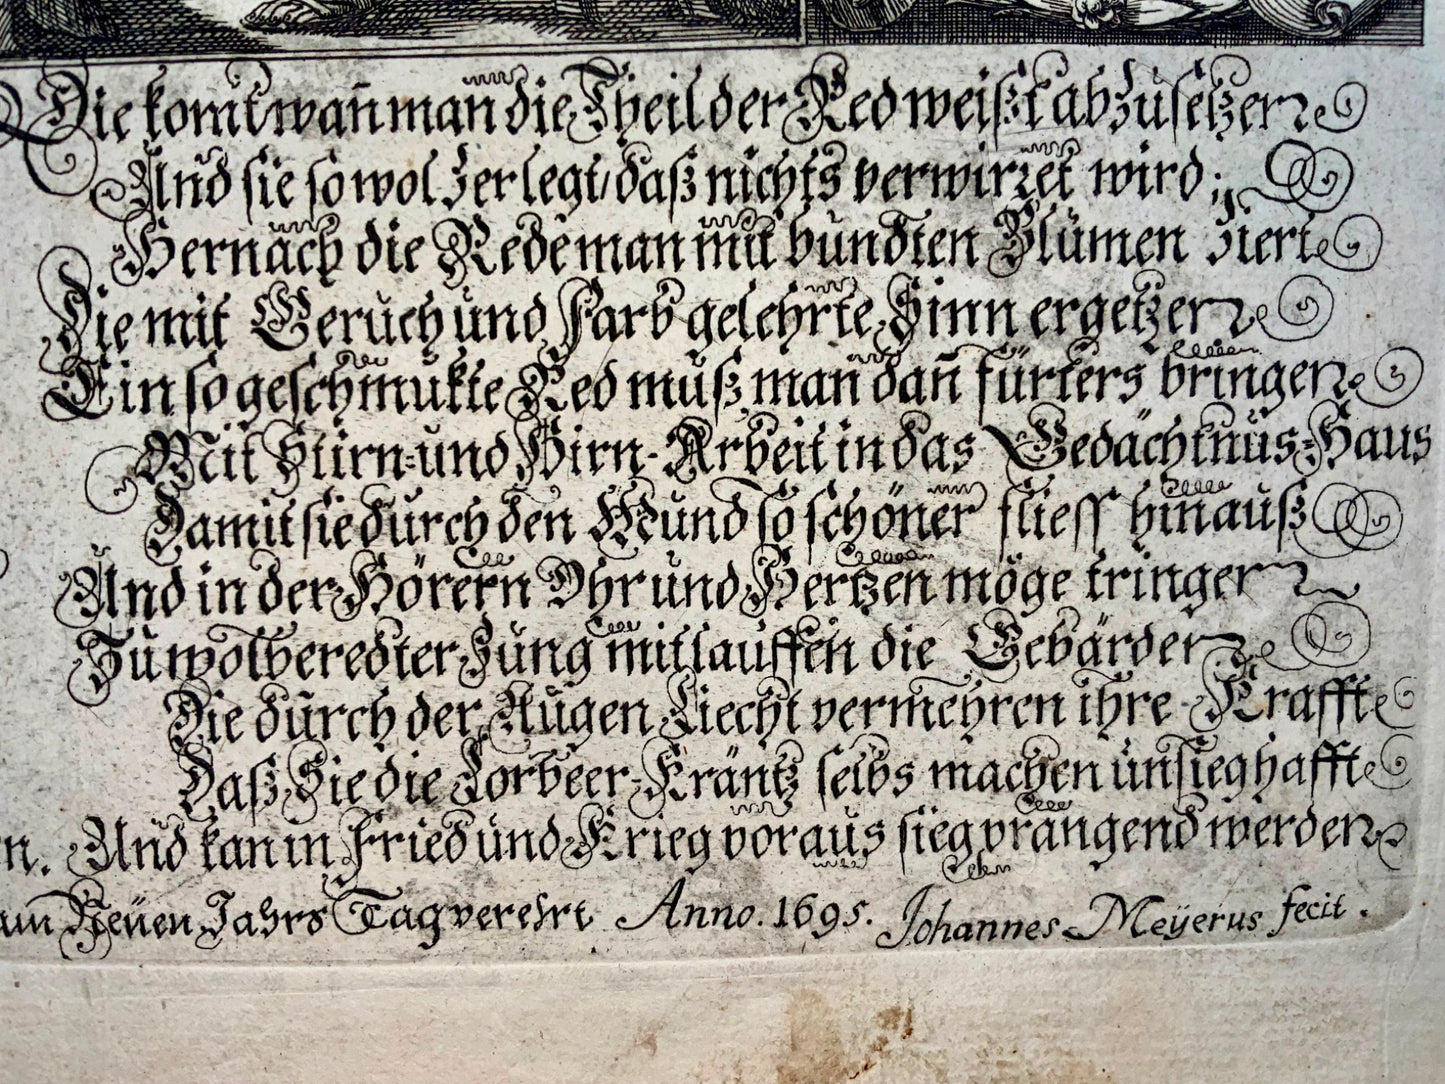 Die kom̃t wañ man die Theil der Red weißt abzusetzen
Und sie so wol zerlegt/ daß nichts verwirzet wird;
Hernach die Rede man mit bundten Blumen ziert
Die mit Geruch und Farb gelehrte Sinn ergetzen
Ein so geschmukte Red muß man dañ fürters bringen
Mit Stirn- und Hirn-Arbeit in das Gedächtnus-Haus
Damit sie durch den Mund so schöner fliess hinauß
Und in der Hörern Ohr und Hertzen möge tringen
Zu wolberedter Zung mitlauffen die Gebärden
Die durch der Augen Liecht vermehren ihre Krafft
Daß Sie die Lorbeer-Kräntz selbs machen unsieghafft
n. Und kan in Fried und Krieg voraus siegprangend werden
um Neuen Jahrs Tag verehrt Anno. 1695. Johannes Meÿerus fecit.